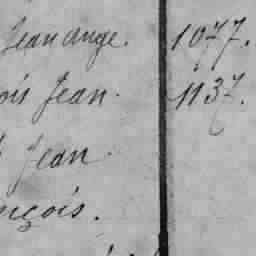 Jean ange. 1077.
ois Jean. 1137.
Jean
nçois.